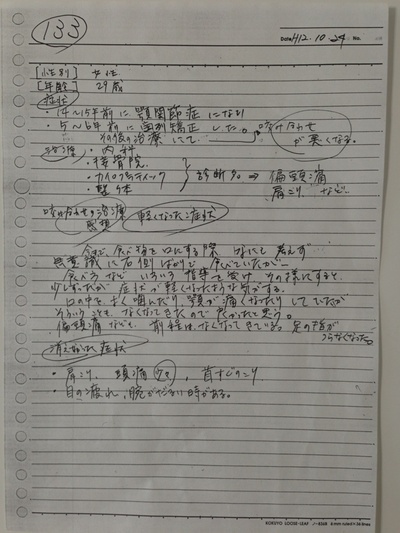 133
Date H12・10・24 No.
[性別] 女性
[年齢] 29歳
症状
・14〜15年前に顎関節症になり
・5〜6年前に歯列矯正した。
その後の治療にて → 咬み合わせが悪くなる。
・内科
・接骨院
・カイロプラティック
・整体
診断名 ⇒ 偏頭痛
肩こり、など
咬み合わせの治療
感想
軽くなった症状
今まで、食べ物を口にする際 なにも考えず
無意識に右側ばかりで 食べていたが
食べ方など いろいろ 指導を受け その様にすると
少しずつだが 症状が軽くなったような気がする。
口の中を よく噛んだり、顎が痛くなったり していたが
そういうことも なくなってきたので 良かったと思う。
偏頭痛なども、前程は、なくなってきている。足の指が
つらなくなった。
消えない症状
・肩こり、頭痛 少々 、首すじのこり
・目の疲れ、腕がだるい時がある。
KOKUYO LOOSE-LEAF
6 mm ruled × 36 lines